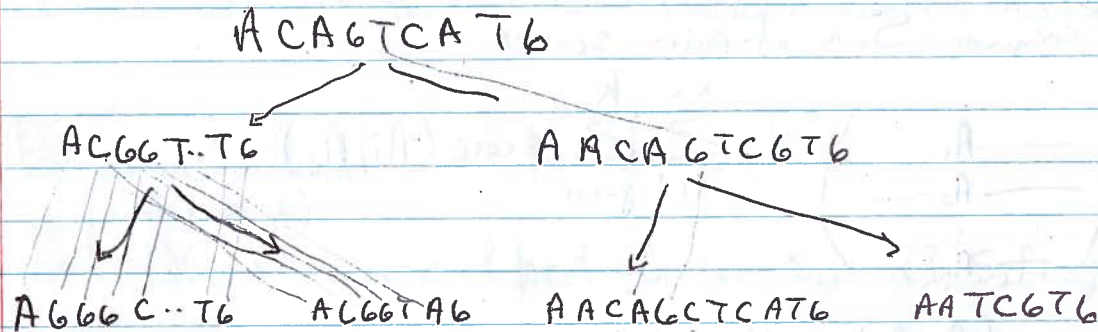 ACAGTCATG
ACGGT..TG AACAGTCGTG
AGGGC..TG ACGGTAG AACAGCTCATG AATCGTG